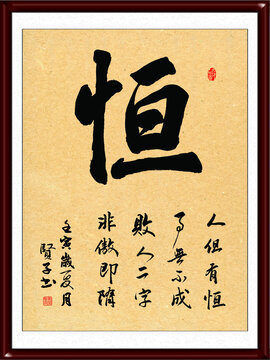 恒
人但有恒
事無不成
敗人二字
非傲即隋
壬寅歲夏月
賢子书